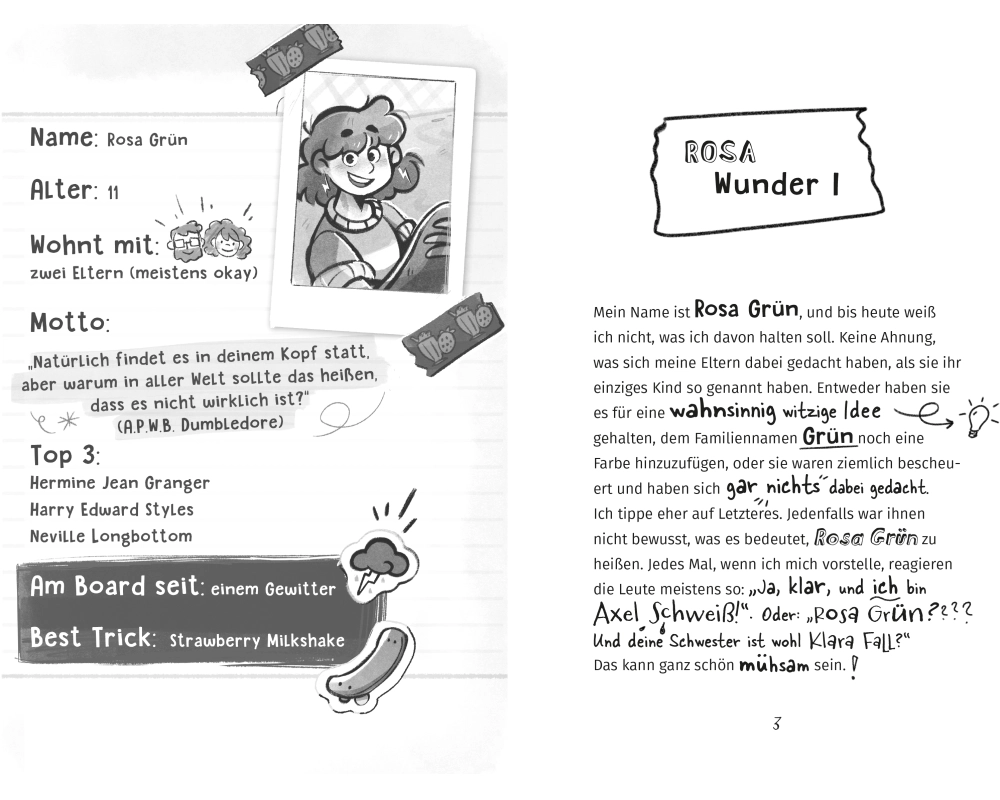 Name: Rosa Grün
Alter: 11
Wohnt mit:
zwei Eltern (meistens okay)
Motto:
„Natürlich findet es in deinem Kopf statt,
aber warum in aller Welt sollte das heißen,
dass es nicht wirklich ist?"
(A.P.W.B. Dumbledore)
Top 3:
Hermine Jean Granger
Harry Edward Styles
Neville Longbottom
Am Board seit: einem Gewitter
Best Trick: Strawberry Milkshake
ROSA
Wunder 1
Mein Name ist Rosa Grün, und bis heute weiß
ich nicht, was ich davon halten soll. Keine Ahnung,
was sich meine Eltern dabei gedacht haben, als sie ihr
einziges Kind so genannt haben. Entweder haben sie
es für eine wahnsinnig witzige Idee
gehalten, dem Familiennamen Grün noch eine
Farbe hinzuzufügen, oder sie waren ziemlich bescheu-
ert und haben sich gar nichts dabei gedacht.
Ich tippe eher auf Letzteres. Jedenfalls war ihnen
nicht bewusst, was es bedeutet, Rosa Grün zu
heißen. Jedes Mal, wenn ich mich vorstelle, reagieren
die Leute meistens so: „Ja, klar, und ich bin
Axel Schweiß!“. Oder: „Rosa Grün????
Und deine Schwester ist wohl Klara Fall?“
Das kann ganz schön mühsam sein. !
3